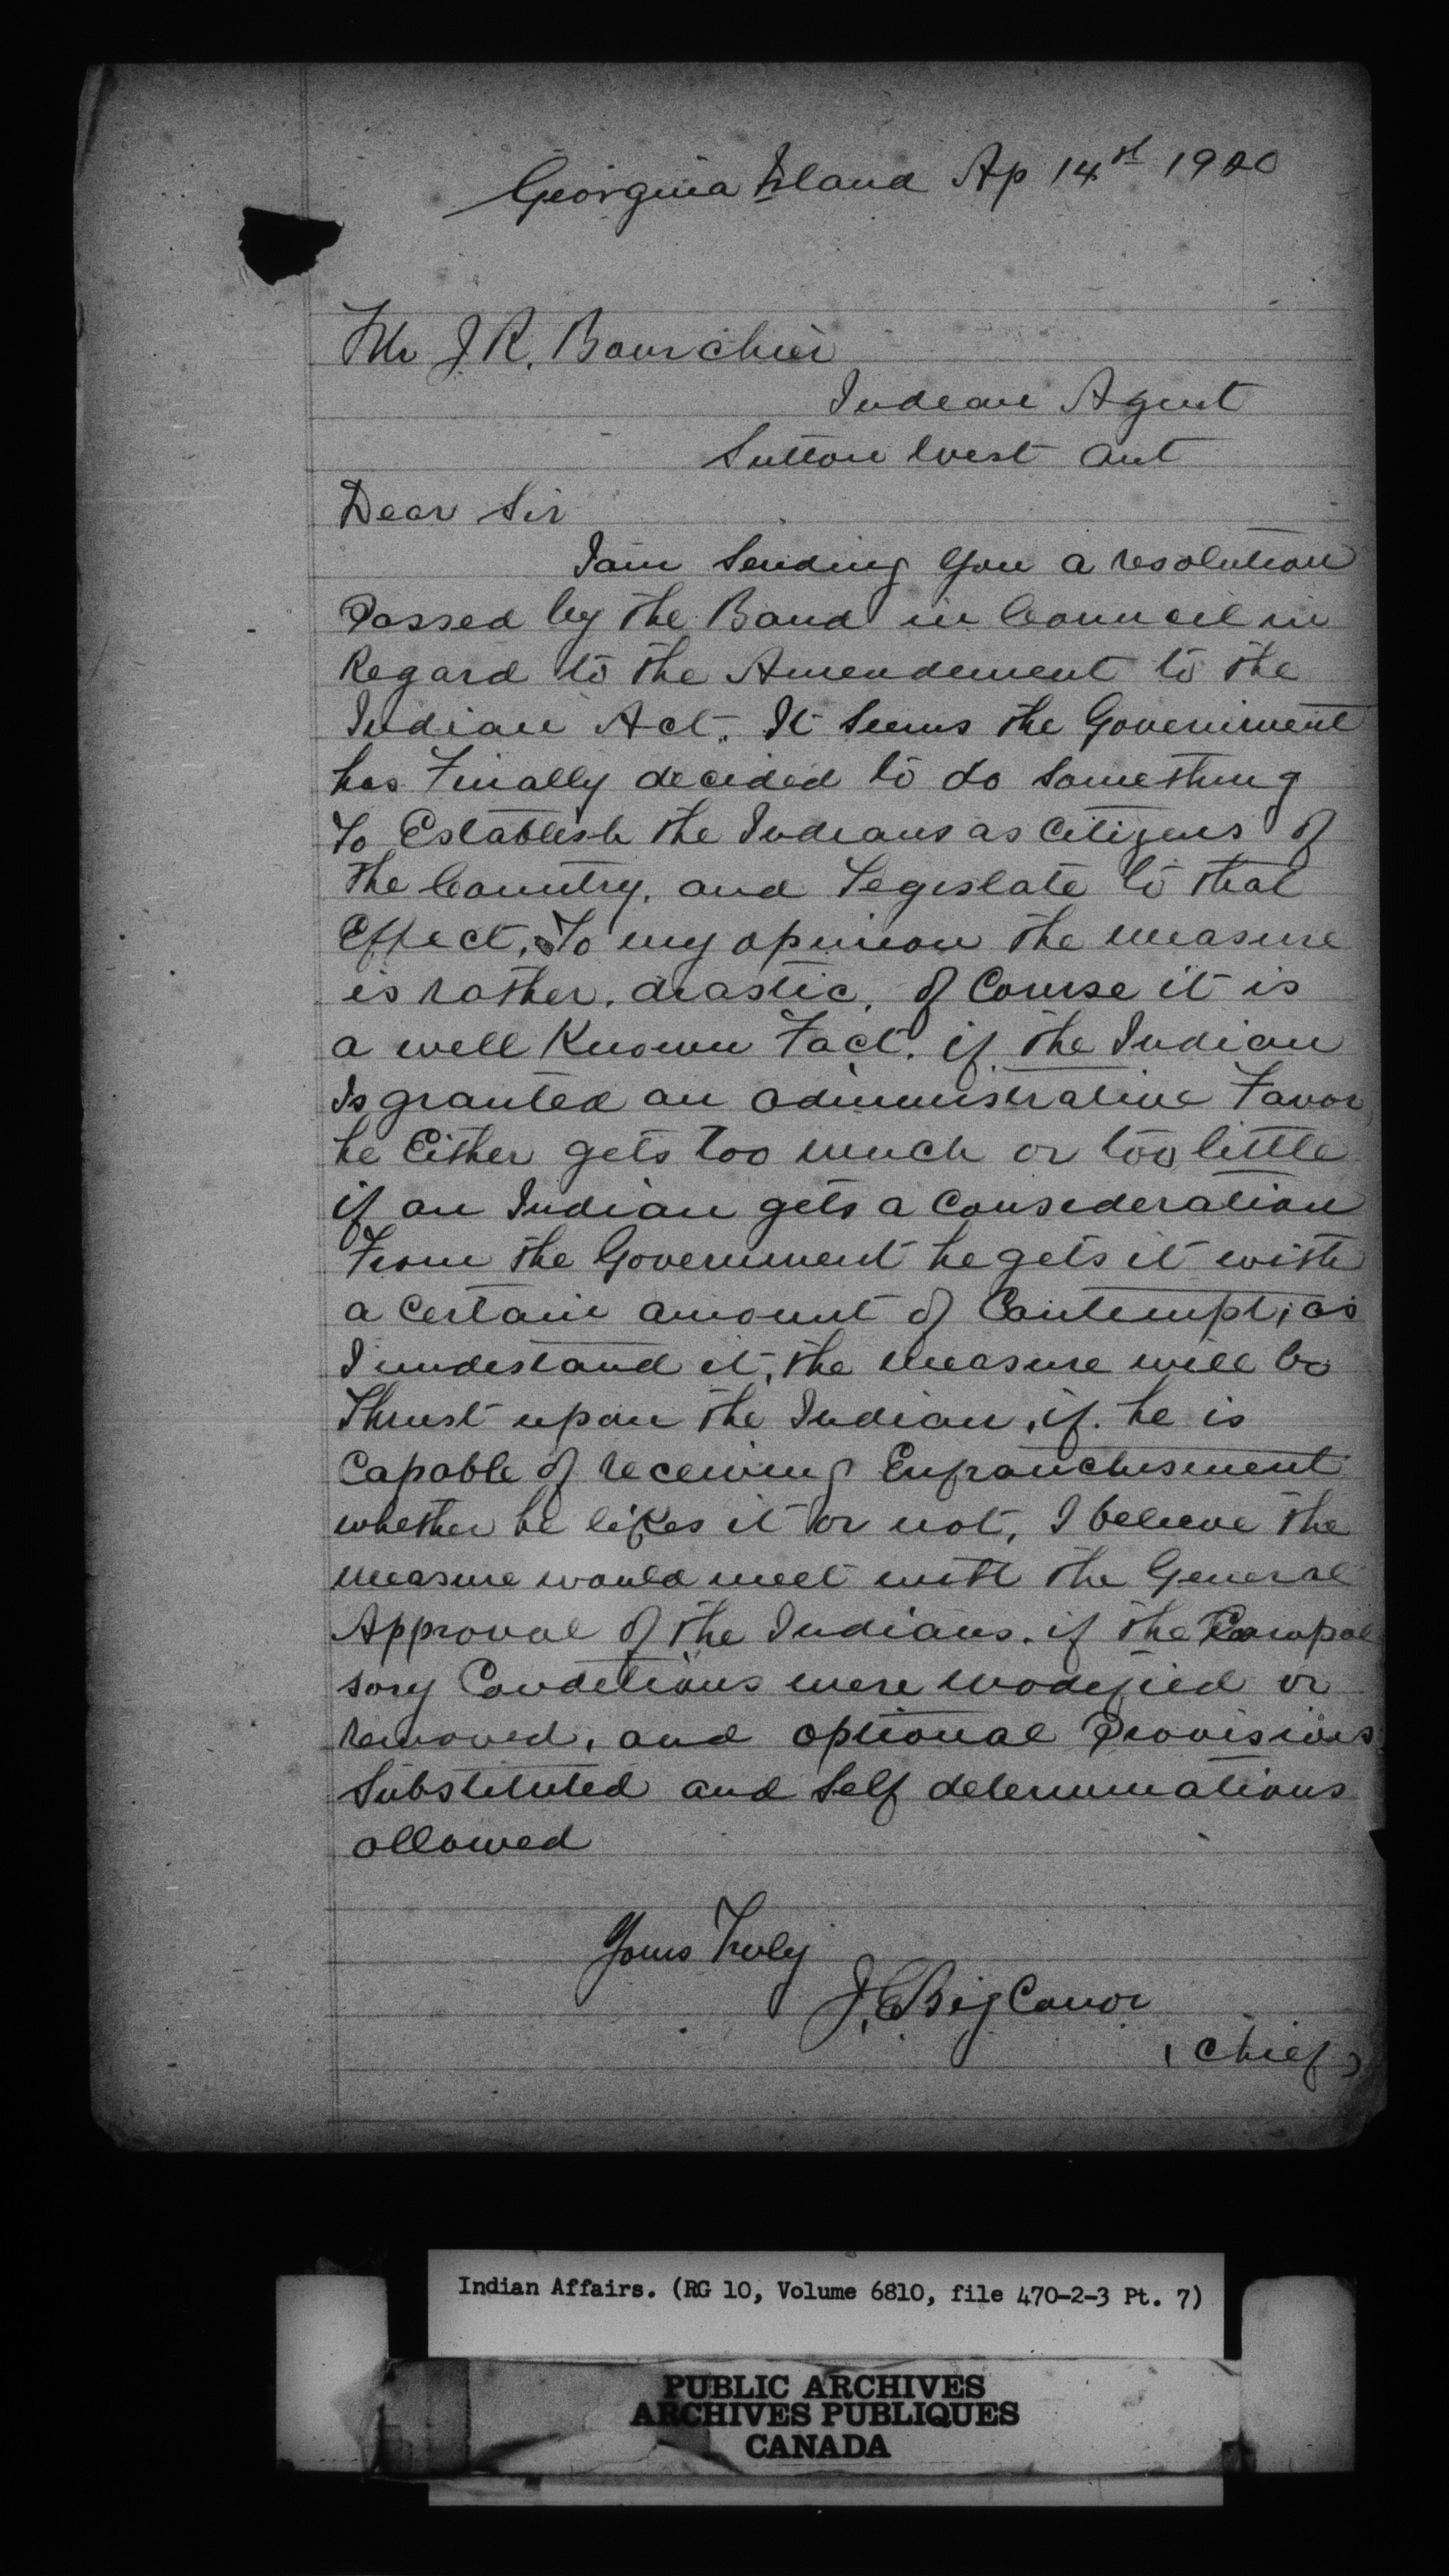 Georgina Island Ap 14th 1920
Mr J R. Bourchier
Indean Agent
Sutton West Ont
Dear Sir
I am Sending you a resolution
Passed by the Band in Council in
Regard to the Amendement to the
Indian Act. It Seems the Government
has Finally decided to do Something
To Establish the Indians as Citizens of
The Country, and Legislate to that
Effect, To my opinion the measure
is rather. drastic. of Course it is
a well Known Fact. if the Indian
Is granted an administrative Favor
he Either gets too much or too little
if an Indian gets a Consideration
From the Government he gets it with
a Certain amount of Contempt, as
I undestand it, the measure will be
Thrust upon the Indian, if. he is
Capable of receiving Enfranchisement
whether he likes it or not, I believe the
measure would meet with the General
Approval of the Indians. if the Compul
sory Conditions were modified or
removed, and optional Provisions
Substituted and Self determinations
allowed
Yours Truly
J. C Big Canoe
(Chief)
Indian Affairs. (RG 10, Volume 6810, file 470-2-3 Pt. 7)
PUBLIC ARCHIVES
ARCHIVES PUBLIQUES
CANADA